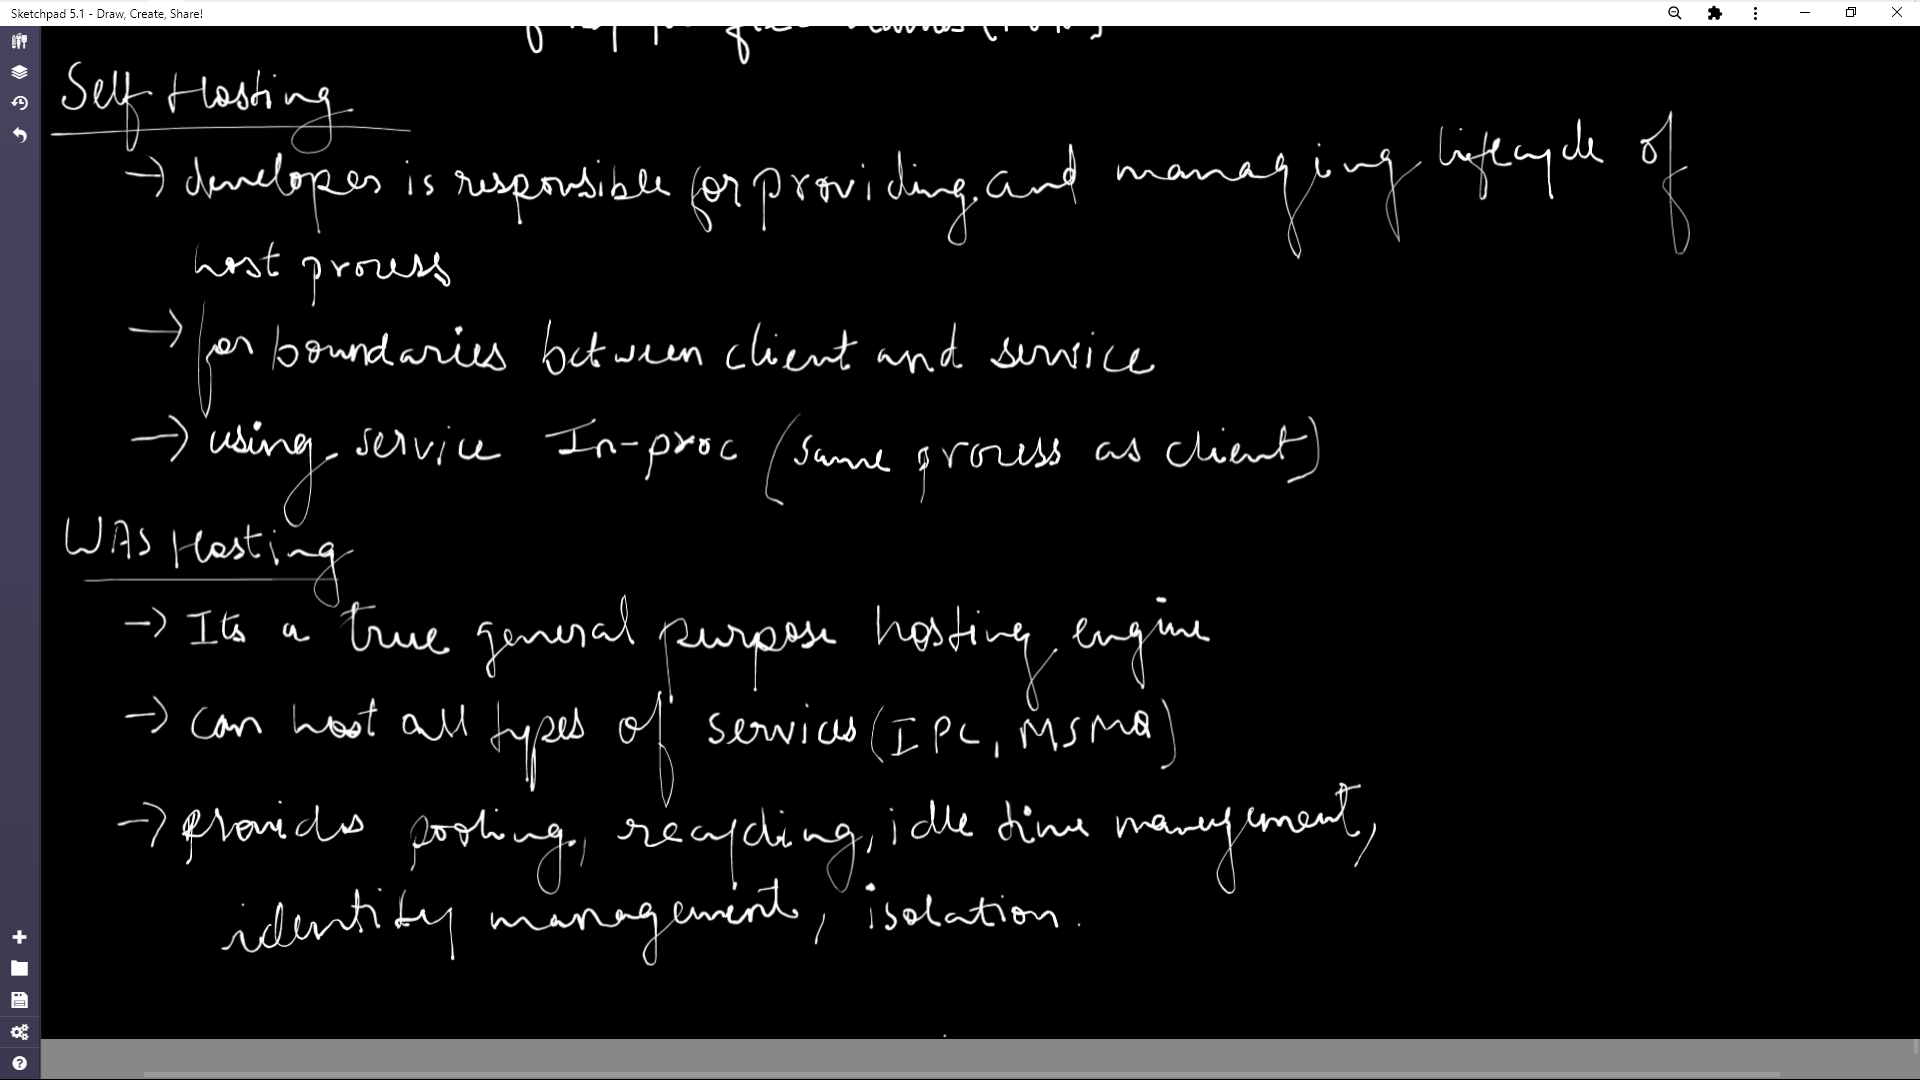 Sketchpad 5.1 - Draw, Create, Share!
Self Hosting
→ developer is responsible for providing and managing lifecycle of
host process
→ for boundaries between client and service
→ using service In-proc (same process as client)
WAS Hosting
→ Its a true general purpose hosting engine
→ can host all types of services (IPC, MSMQ)
→ provides pooling, recycling, idle time management,
identity management, isolation.